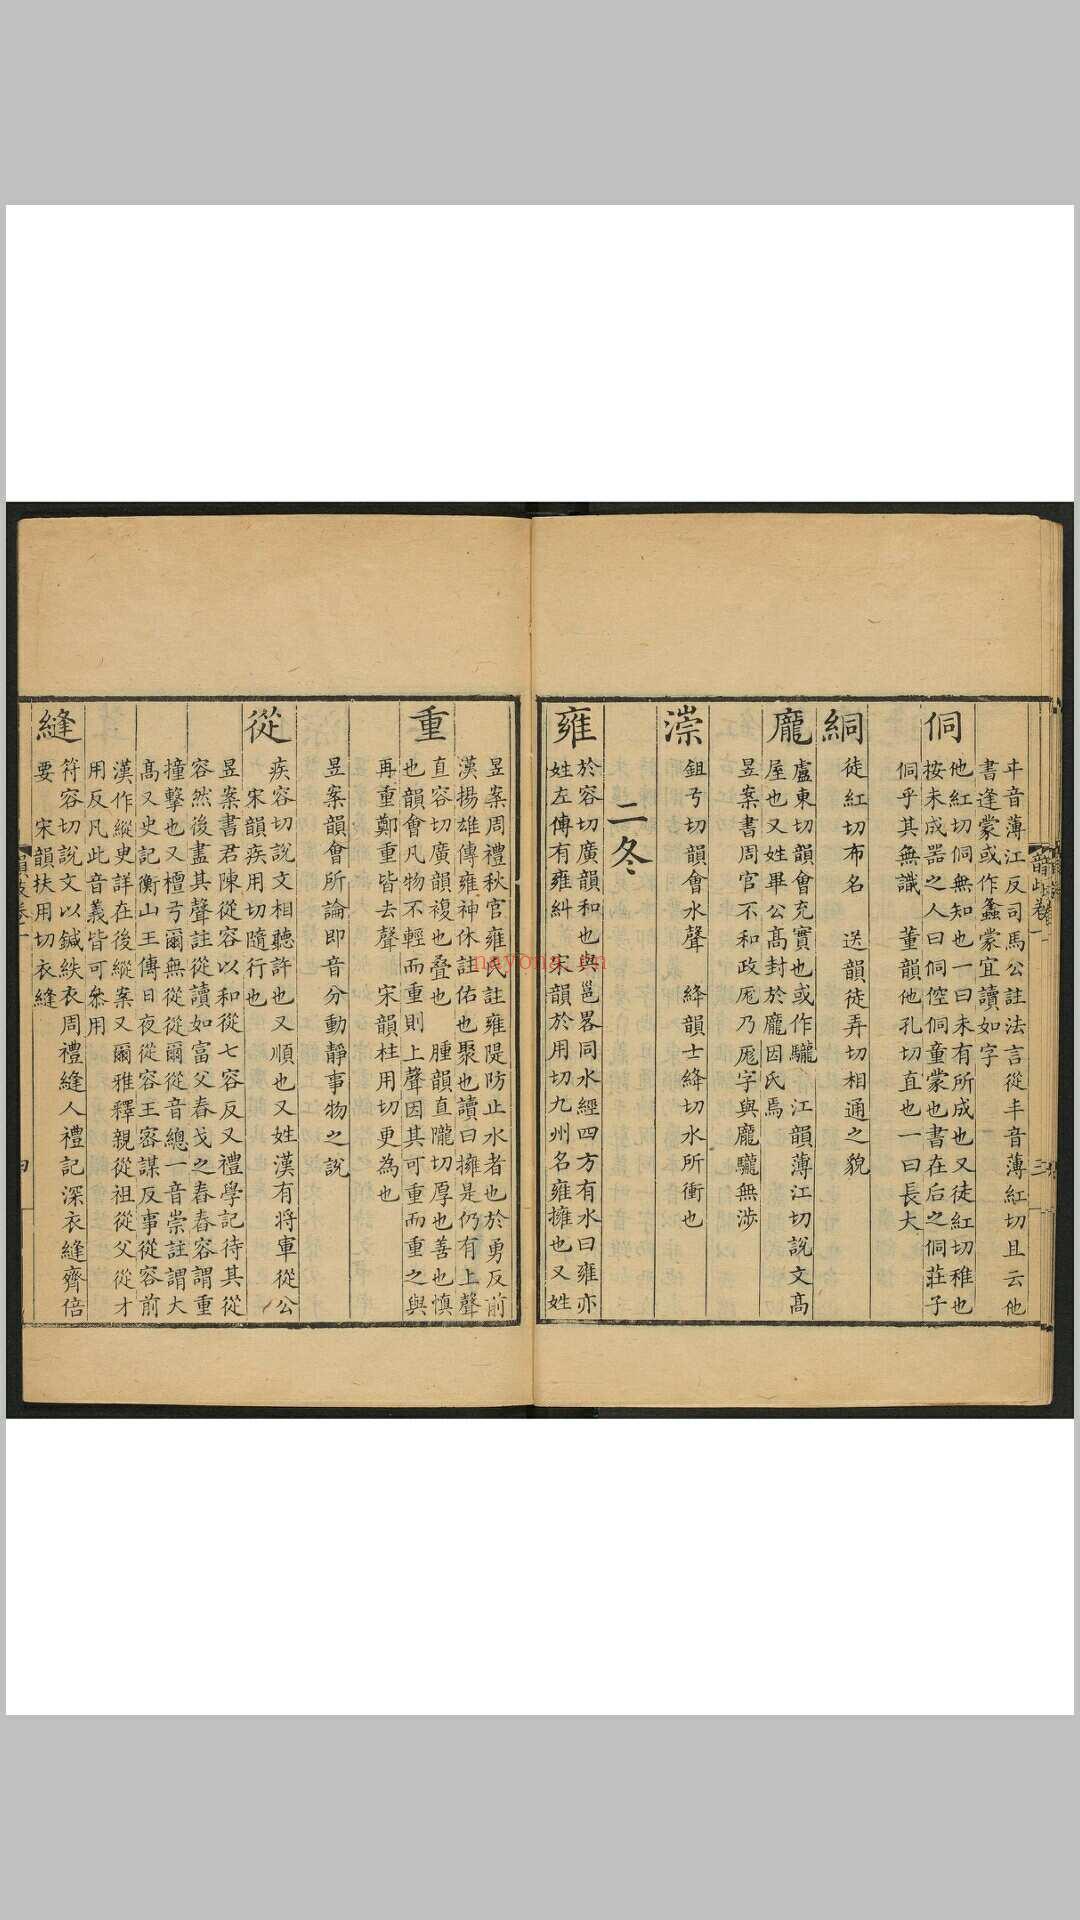 丰音薄江反司馬公註法言從丰音薄紅切且云他
書逢蒙或作蠭蒙宜讀如字
侗
他紅切侗無知也一曰未有所成也又徒紅切稚也
按未成器之人曰侗倥侗童蒙也書在后之侗莊子
侗乎其無識 董韻他孔切直也一曰長大
絧
徒紅切布名 送韻徒弄切相通之貌
龐
盧東切韻會充實也或作驡 江韻薄江切說文高
屋也又姓畢公高封於龐因氏焉
昱案書周官不和政厖乃厖字與龐驡無涉
漴
鉏弓切韻會水聲 絳韻士絳切水所衝也
二冬
雍
於容切廣韻和也與邕畧同水經四方有水曰雍亦
姓左傳有雍糾 宋韻於用切九州名雍擁也又姓
昱案周禮秋官雍氏註雍隄防止水者也於勇反前
漢揚雄傳雍神休註佑也聚也讀曰擁是仍有上聲
重
直容切廣韻複也疊也 腫韻直隴切厚也善也慎
也韻會凡物不輕而重則上聲因其可重而重之與
再重鄭重皆去聲 宋韻柱用切更為也
昱案韻會所論即音分動靜事物之說
從
疾容切說文相聽許也又順也又姓漢有將軍從公
宋韻疾用切隨行也
昱案書君陳從容以和從七容反又禮學記待其從
容然後盡其聲註從讀如富父舂戈之舂舂容謂重
撞擊也又檀弓爾無從從爾從音總一音崇註謂大
高又史記衡山王傳日夜從容王密謀反事從容前
漢作縱臾詳在後縱案又爾雅釋親從祖從父從才
用反凡此音義皆可叅用
縫
符容切說文以鍼紩衣周禮縫人禮記深衣縫齊倍
要 宋韻扶用切衣縫
韻歧卷一
四
nayona.cn